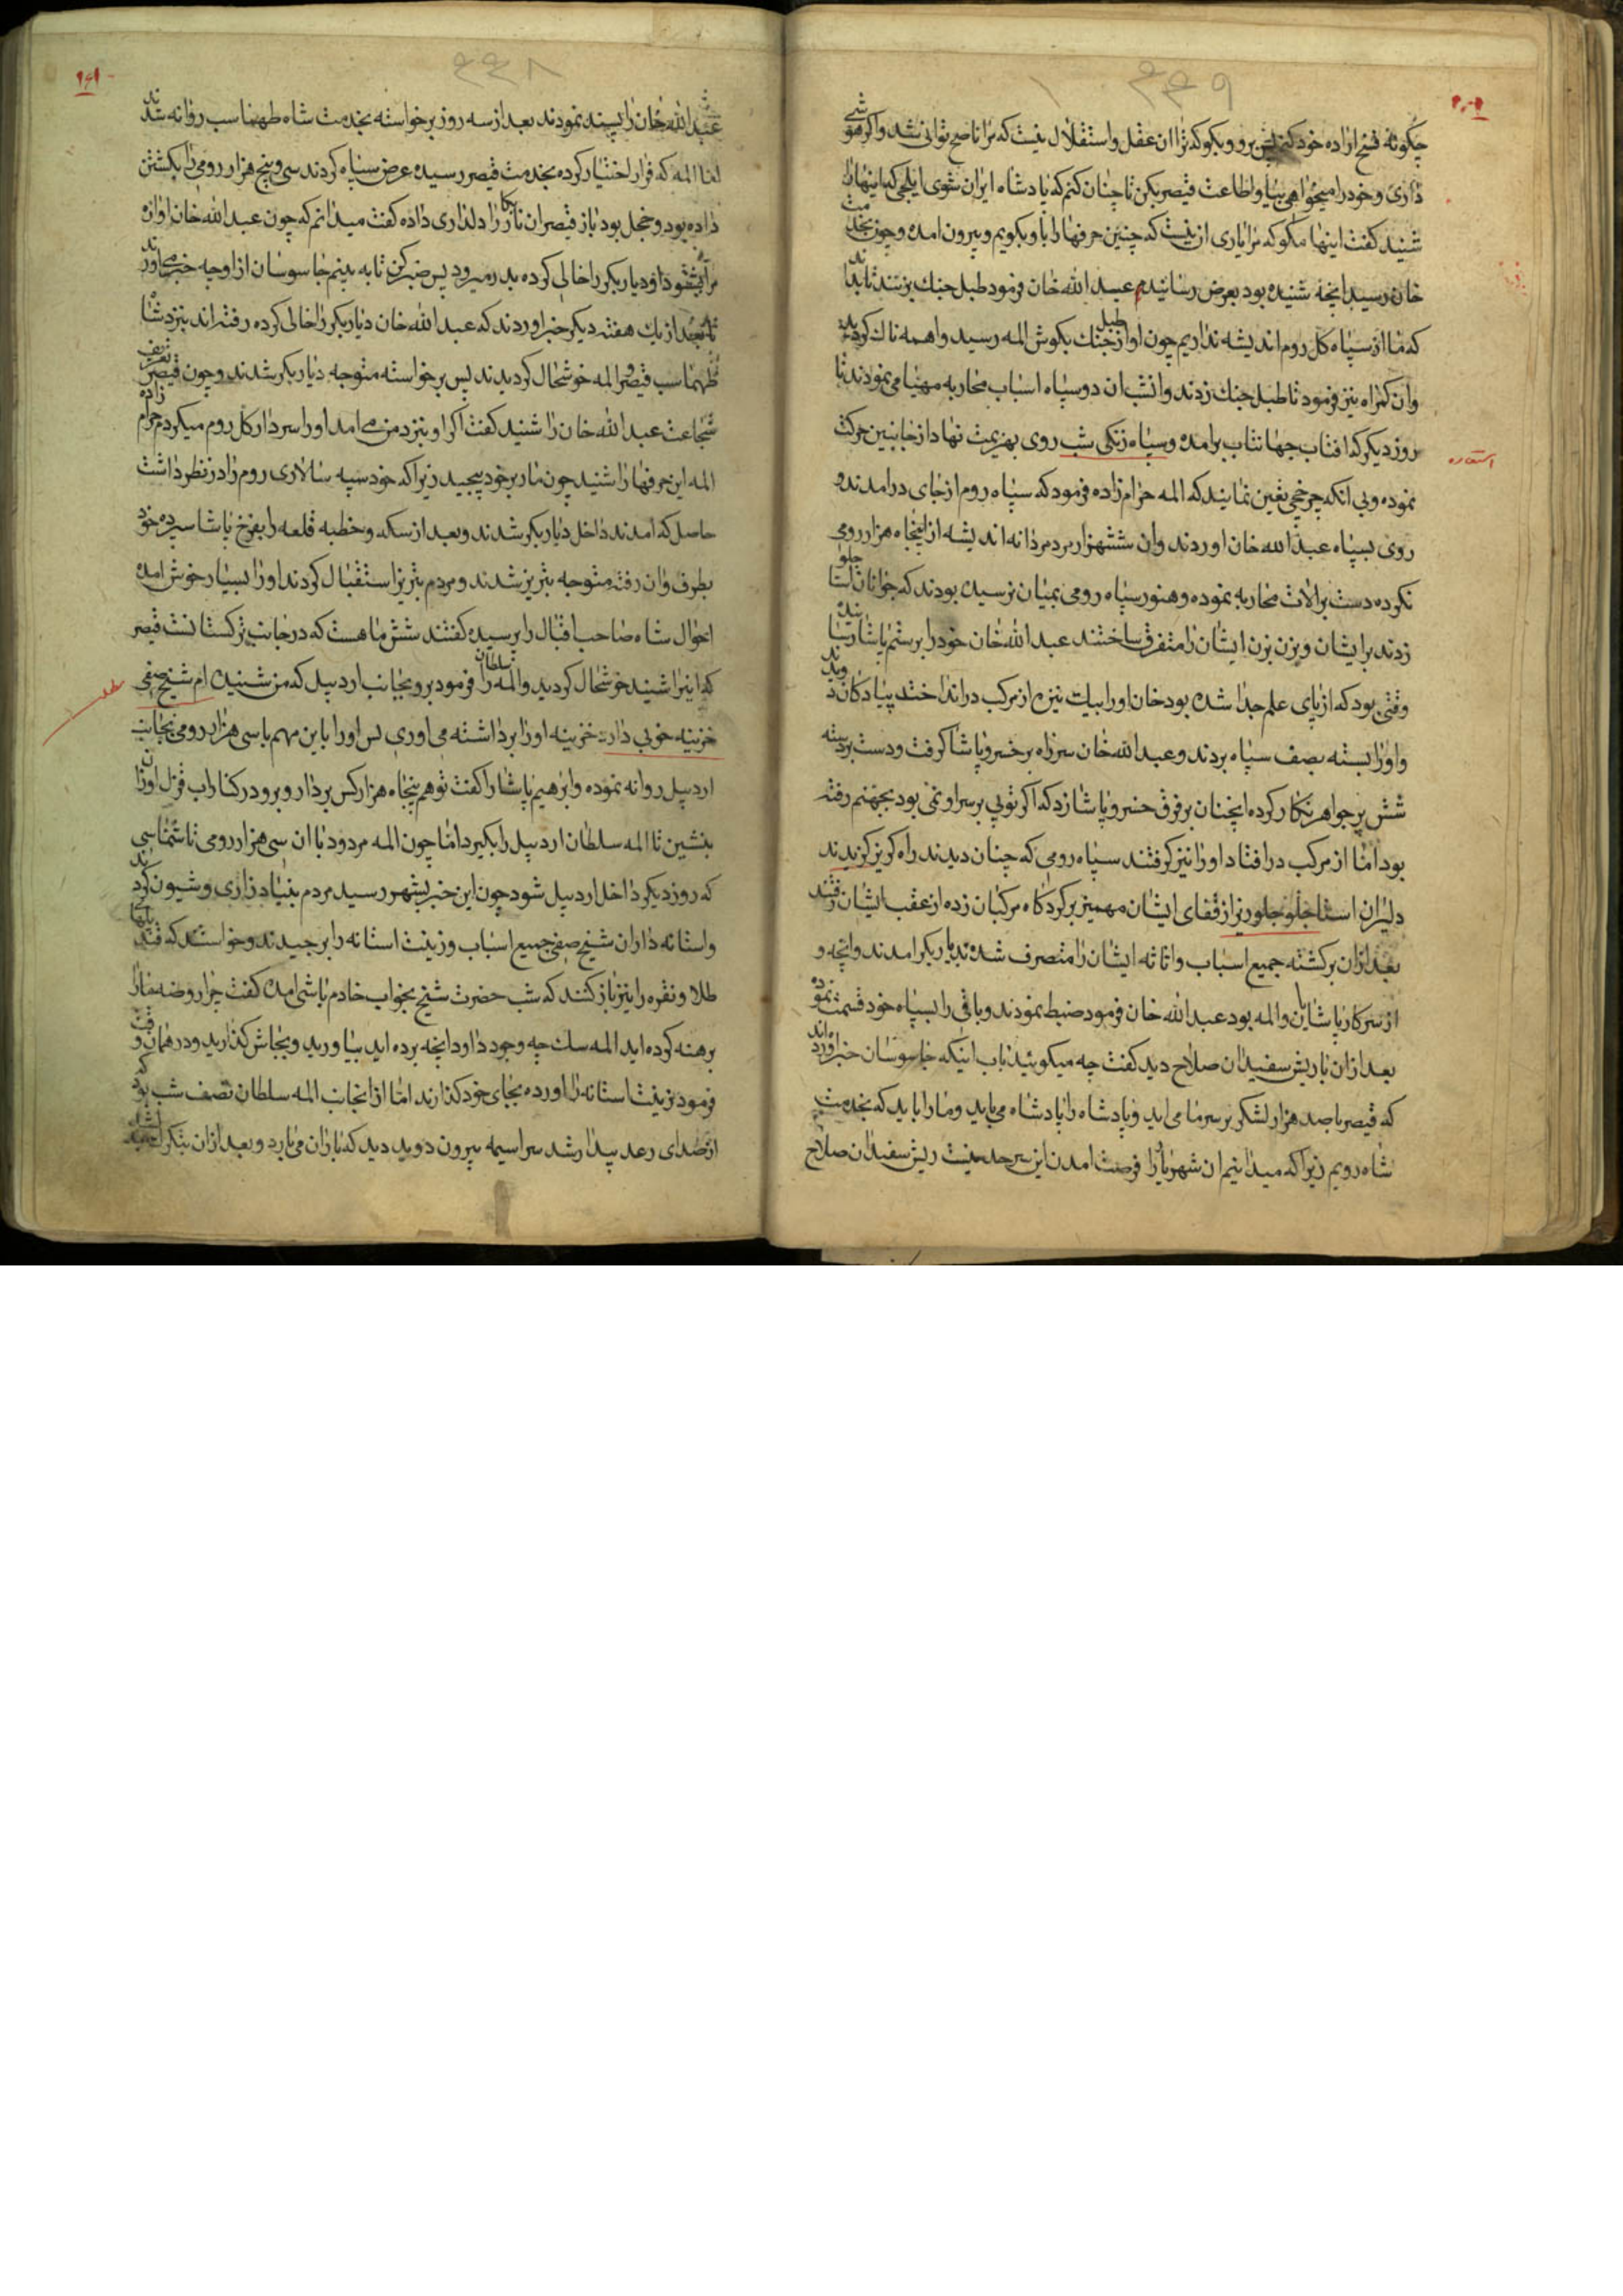 ۴۴۹
چگونه فسخ اراده خود کند پس برو و بگو که ترا ان عقل و استقلال نیست که مرا ناصح توانی شد و اگر هو شی
داری و خود را میخواهی بیا و اطاعت قیصر بکن تا چنان کنم که پادشاه ایران شوی ایلچی که اینها را
شنید گفت اینها مگو که مرا یاری ان نیست که چنین حرفها را با و بگویم و بیرون امده و چون بخدمت
خان رسید انچه شنیده بود بعرض رسانید عبد الله خان فرمود طبل جنك بزنند تا بدانند
که ما از سپاه کل روم اندیشه نداریم چون اواز طبل جنك بگوش المه رسید واهمه ناك گردید
وان گمراه نیز فرمود تا طبل جنك زدند وانشب ان دو سپاه اسباب محاربه مهیا می نمودند تا
روز دیگر که افتاب جهانتاب برامده و سپاه زنگی شب روی بهزیمت نهاد از جانبین حرکت
استعاره
نموده و بی انکه چرخچی تعین نمایند که المه حرام زاده فرمود که سپاه روم از جای درامدند و
روی بسپاه عبد الله خان اوردند وان ششهزار مرد مردانه اندیشه از پنجاه هزار رومی
نکرده دست برالات محاربه نموده و هنوز سپاه رومی بمیان نرسیده بودند که جوانان استاجلو
زدند برایشان و بزن بزن ایشان را متفرق ساختند عبد الله خان خود را برستم پاشا رسانید
وقتی بود که از پای علم جدا شده بود خان او را بیك نیزه از مرکب در انداخت پیادگان دویدند
و او را بسته بصف سپاه بردند و عبد الله خان سر راه بر خسرو پاشا گرفت و دست بر دسته
شش پر جواهر نگار کرده انچنان بر فرق خسرو پاشا زد که اگر توپی بر سر او نمی بود بجهنم رفته
بود اما از مرکب در افتاد او را نیز گرفتند سپاه رومی که چنان دیدند راه گریز گزیدند
دلیران استاجلو جلوریز از قفای ایشان مهمیز بر گردگاه مرکبان زده از عقب ایشان رفتند
بعد ازان برگشته جمیع اسباب و اثاثه ایشان را متصرف شده بدیاربکر امدند و انچه و
از سرکار پاشایان و المه بود عبد الله خان فرمود ضبط نمودند و باقی را بسپاه خود قسمت نموده
بعد ازان با ریش سفیدان صلاح دید گفت چه میگوئید باب اینکه جاسوسان خبر اورده اند
که قیصر با صد هزار لشکر بر سر ما می اید و پادشاه را پادشاه می باید و ما را باید که بخدمت
شاه رویم زیرا که میدانیم ان شهریار را فرصت امدن این سرحد نیست ریش سفیدان صلاح
۴۴۸
عبد الله خان را پسند نمودند بعد از سه روز برخواسته بخدمت شاه طهماسب روانه شدند
اما المه که فرار اختیار کرده بخدمت قیصر رسیده عرض سپاه کردند سی و پنج هزار رومی را بکشتن
داده بود و خجل بود باز قیصر ان نابکار را دلداری داده گفت میدانم که چون عبد الله خان اوازه
مرا بشنود او دیاربکر را خالی کرده بدر میرود پس صبر کن تا به بینم جاسوسان از او چه خبر می اورند
تا بعد از یك هفته دیگر خبر اوردند که عبد الله خان دیاربکر را خالی کرده رفته اند بنزد شاه
طهماسب قیصر و المه خوشحال گردیدند پس برخواسته متوجه دیاربکر شدند و چون قیصر تعریف
شجاعت عبد الله خان را شنید گفت اگر او بنزد من می امد او را سردار کل روم میکردم حرام زاده
المه این حرفها را شنید چون مار بر خود پیچید زیرا که خود سپه سالاری روم را در نظر داشت
حاصل که امدند داخل دیاربکر شدند و بعد از سکه و خطبه قلعه را بفرخ پاشا سپرده خود
بطرف وان رفته متوجه تبریز شدند و مردم تبریز استقبال کردند او را بسیار خوش امده
احوال شاه صاحب اقبال را پرسیده گفتند شش ماهست که در جانب ترکستانست قیصر
که اینرا شنید خوشحال گردید و المه سلطان را فرمود برو بجانب اردبیل که من شنیده ام شیخ صفی
خزینه خوبی دارد خزینه او را برداشته می اوری پس او را باین مهم با سی هزار رومی بجانب
اردبیل روانه نموده و ابرهیم پاشا را گفت تو هم پنجاه هزار کس بردار و برو در کنار اب قزل اوزن
بنشین تا المه سلطان اردبیل را بگیرد اما چون المه مردود با ان سی هزار رومی تا شماسی
که روز دیگر داخل اردبیل شود چون این خبر بشهر رسید مردم بنیاد زاری و شیون کردند
و استانه داران شیخ صفی جمیع اسباب و زینت استانه را برچیدند و خواستند که قندیلهای
طلا و نقره را نیز باز کنند که شب حضرت شیخ بخواب خادم باشی امده گفت چرا روضه مارا
برهنه کرده اید المه سك چه وجود دارد انچه برده اید بیاورید و بجاش گذارید و در همان وقت
فرمود زینت استانه را اورده بجای خود گذارند اما از انجانب المه سلطان نصف شب بود که
از صدای رعد بیدار شد سراسیمه بیرون دوید دید که باران می بارد و بعد ازان تگرگ